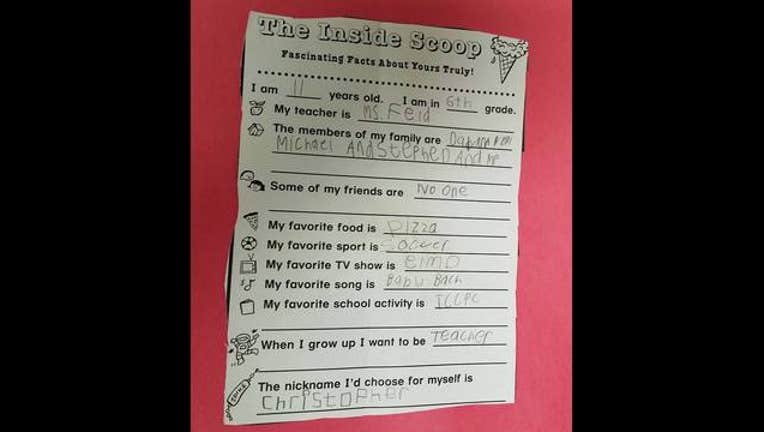 The Inside Scoop
Fascinating Facts About Yours Truly!
I am 11 years old. I am in 6th grade.
My teacher is Ms. Feid
The members of my family are
Michael And Stephen And me
Some of my friends are No one
My favorite food is pizza
My favorite sport is soccer
My favorite TV show is elmo
My favorite song is Babu Bach
My favorite school activity is
When I grow up I want to be Teacher
The nickname I'd choose for myself is
Christopher